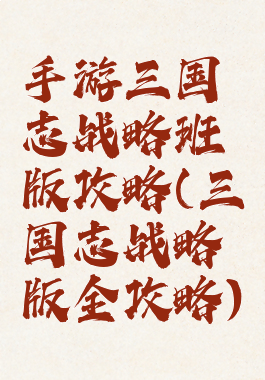 手游三国
志战略班
版攻略(三
国志战略
版全攻略)